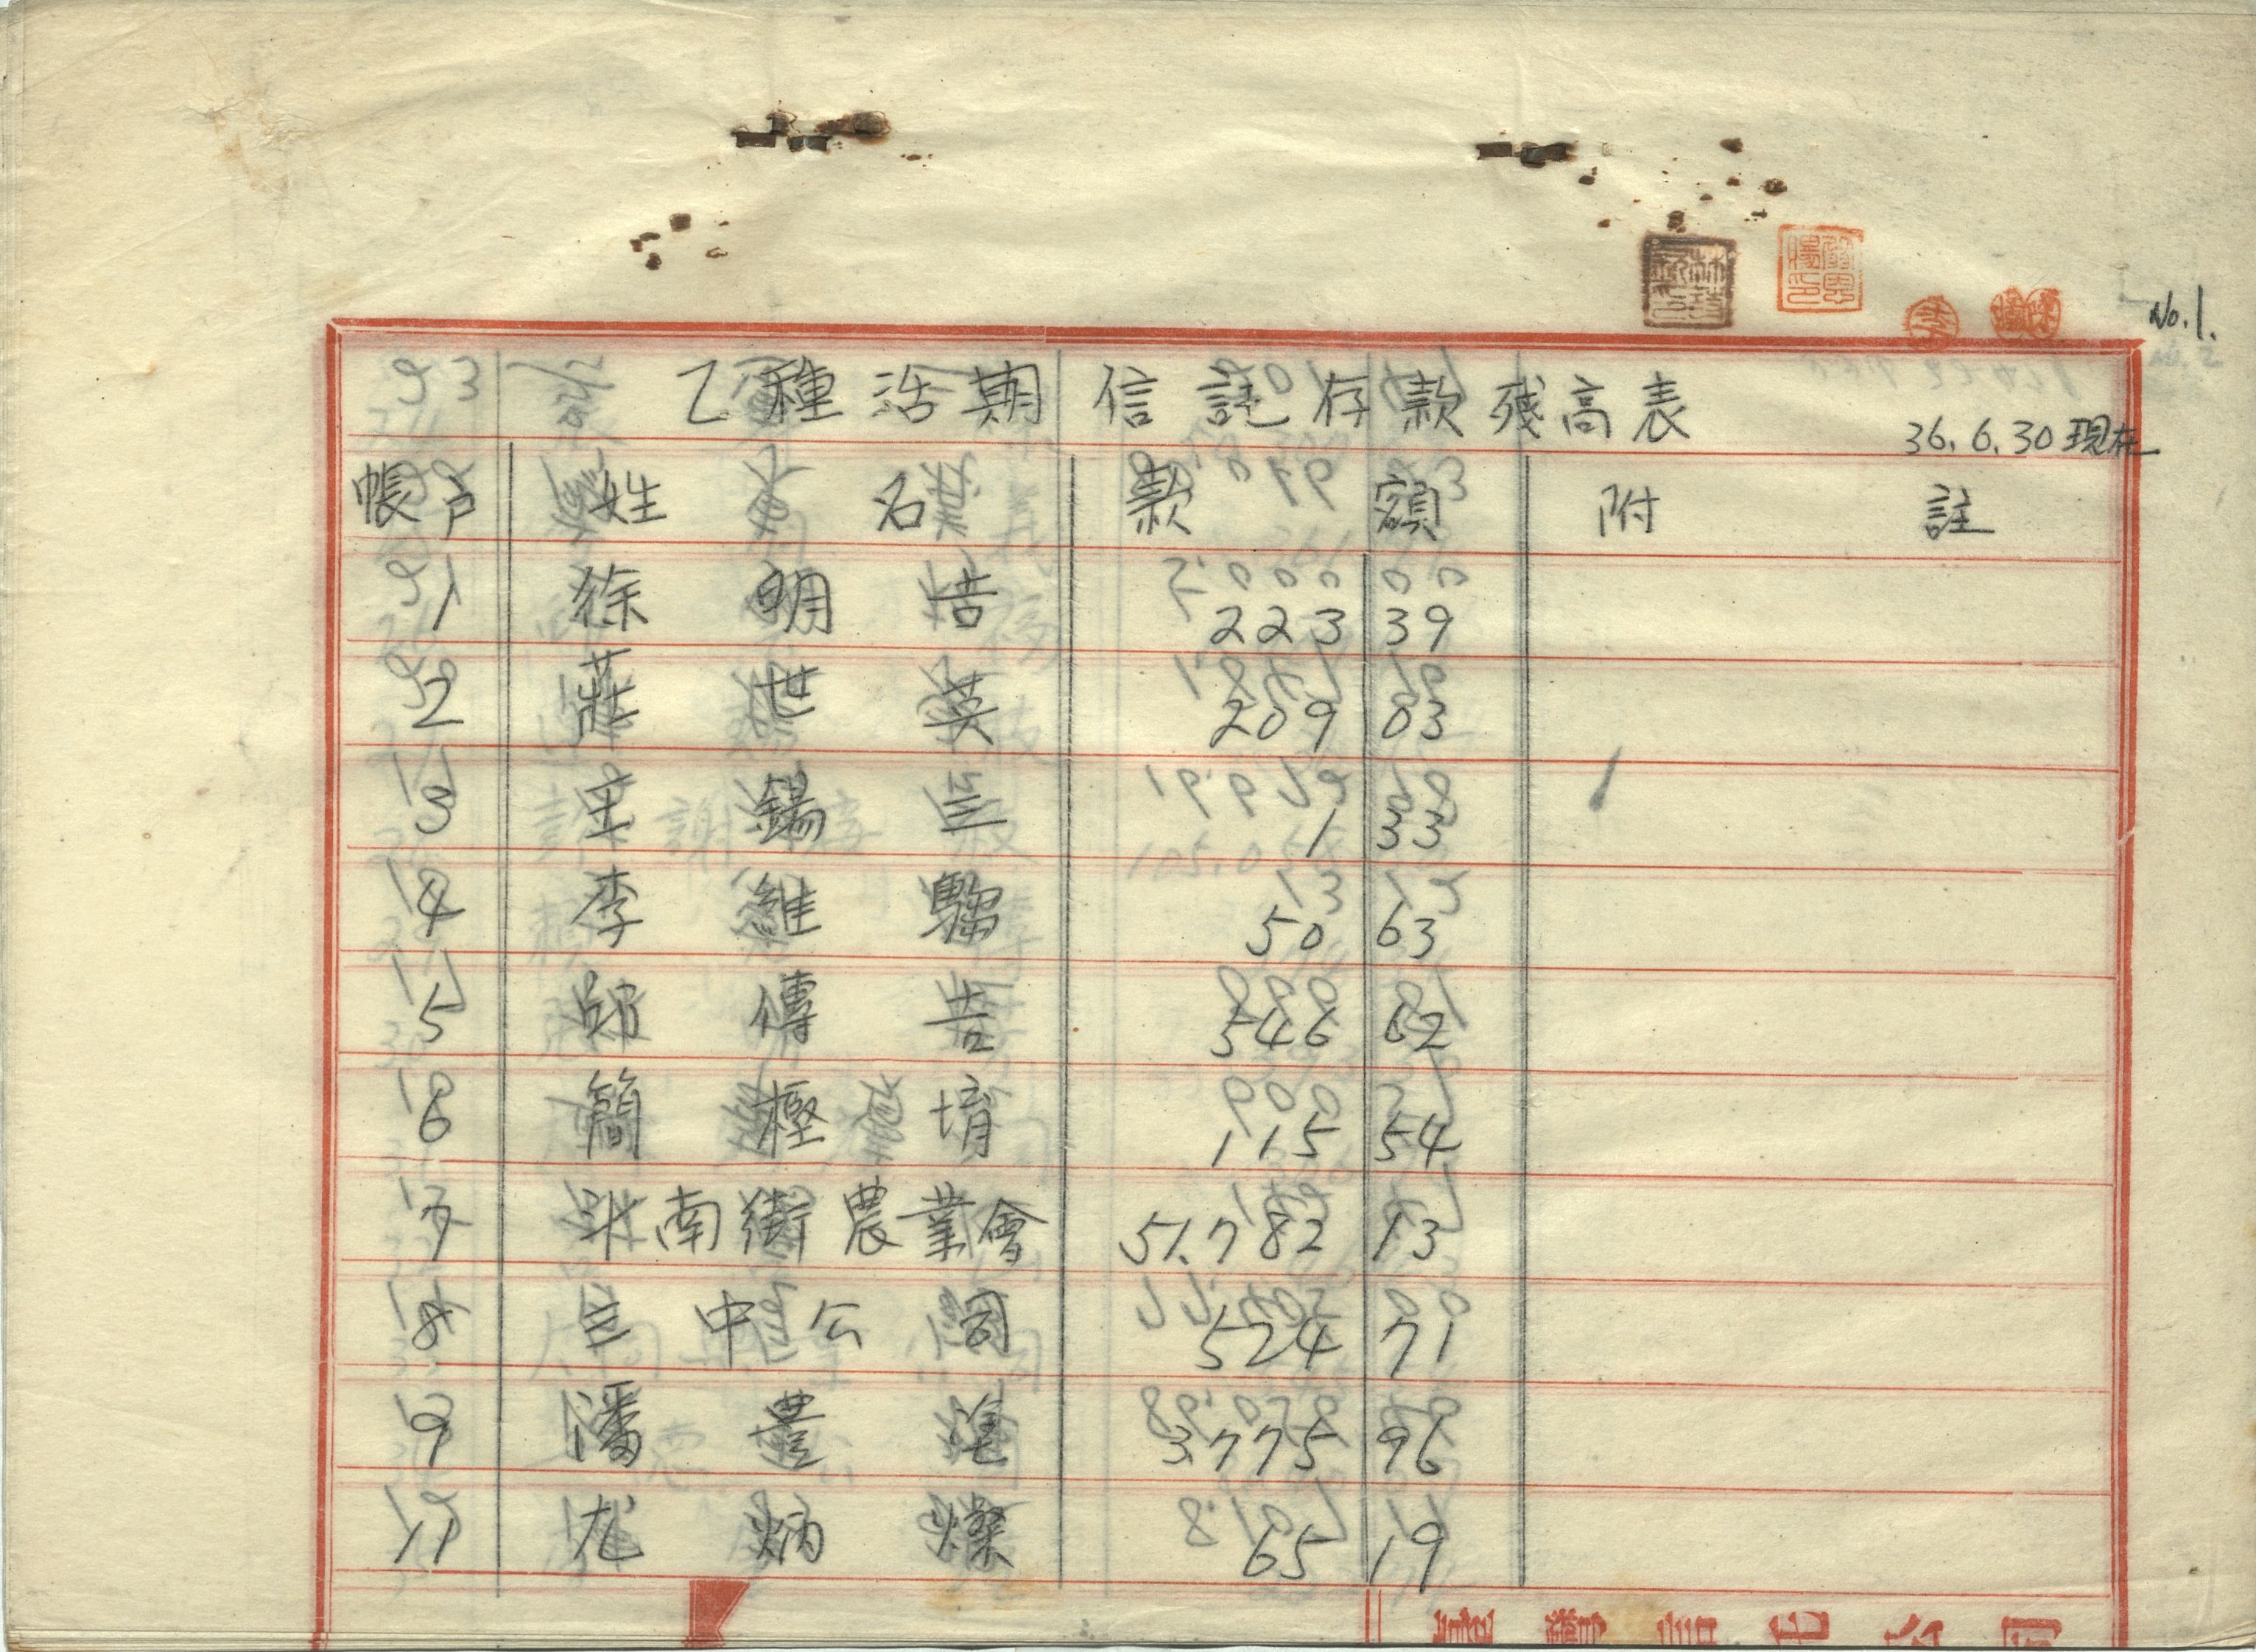 No.1.
乙種活期信託存款殘高表
36.6.30現在
帳戶 姓名 款額 附註
1 徐明浩 223 39
2 莊世英 209 03
3 王錫三 1 33
4 李維騮 50 63
5 邱傳吉 546 62
6 簡樫堉 115 54
7 斗南街農業會 51,782 13
8 三中公司 524 71
9 潘豊 3,775 96
11 尤炳燦 65 19